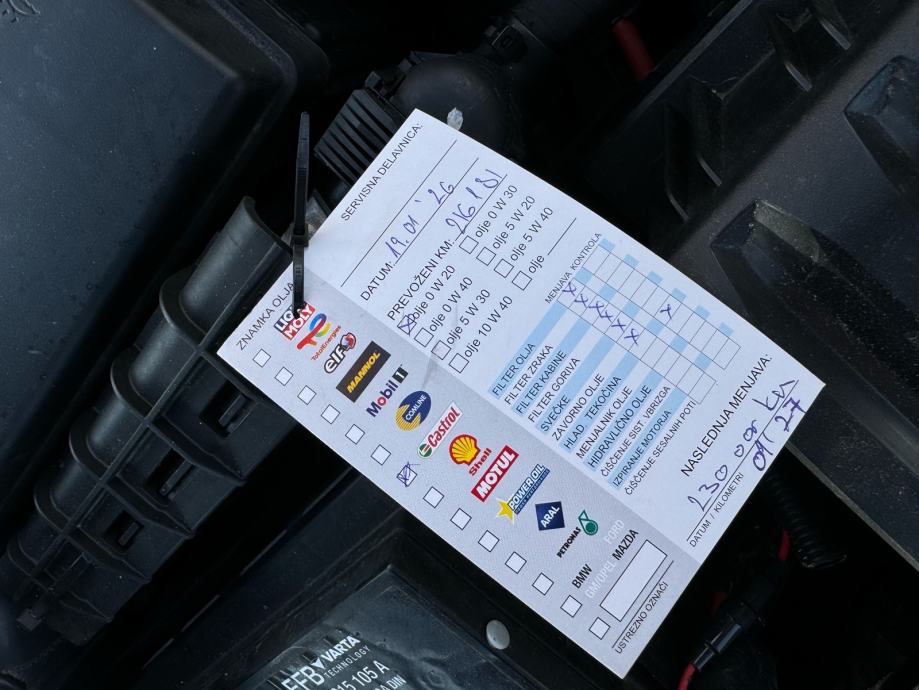 SERVISNA DELAVNICA:
DATUM: 19.01 '26
PREVOŽENI KM: 216181
olje 0 W 20
olje 0 W 30
olje 0 W 40
olje 5 W 20
olje 5 W 30
olje 5 W 40
olje 10 W 40
olje
MENJAVA KONTROLA
FILTER OLJA
FILTER ZRAKA
FILTER KABINE
FILTER GORIVA
SVEČKE
ZAVORNO OLJE
HLAD. TEKOČINA
MENJALNIK OLJE
HIDRAVLIČNO OLJE
ČIŠČENJE SIST. VBRIZGA
IZPIRANJE MOTORJA
ČIŠČENJE SESALNIH POTI
NASLEDNJA MENJAVA:
230 000 km
01 27
DATUM / KILOMETRI
ZNAMKA OLJA
LIQUI MOLY
TotalEnergies
elf
MANNOL
Mobil 1
COMLINE
Castrol
Shell
MOTUL
POWER OIL
ARAL
PETRONAS
BMW FORD
GM/OPEL MAZDA
USTREZNO OZNAČI
EFB VARTA
TECHNOLOGY
615 105 A
DIN